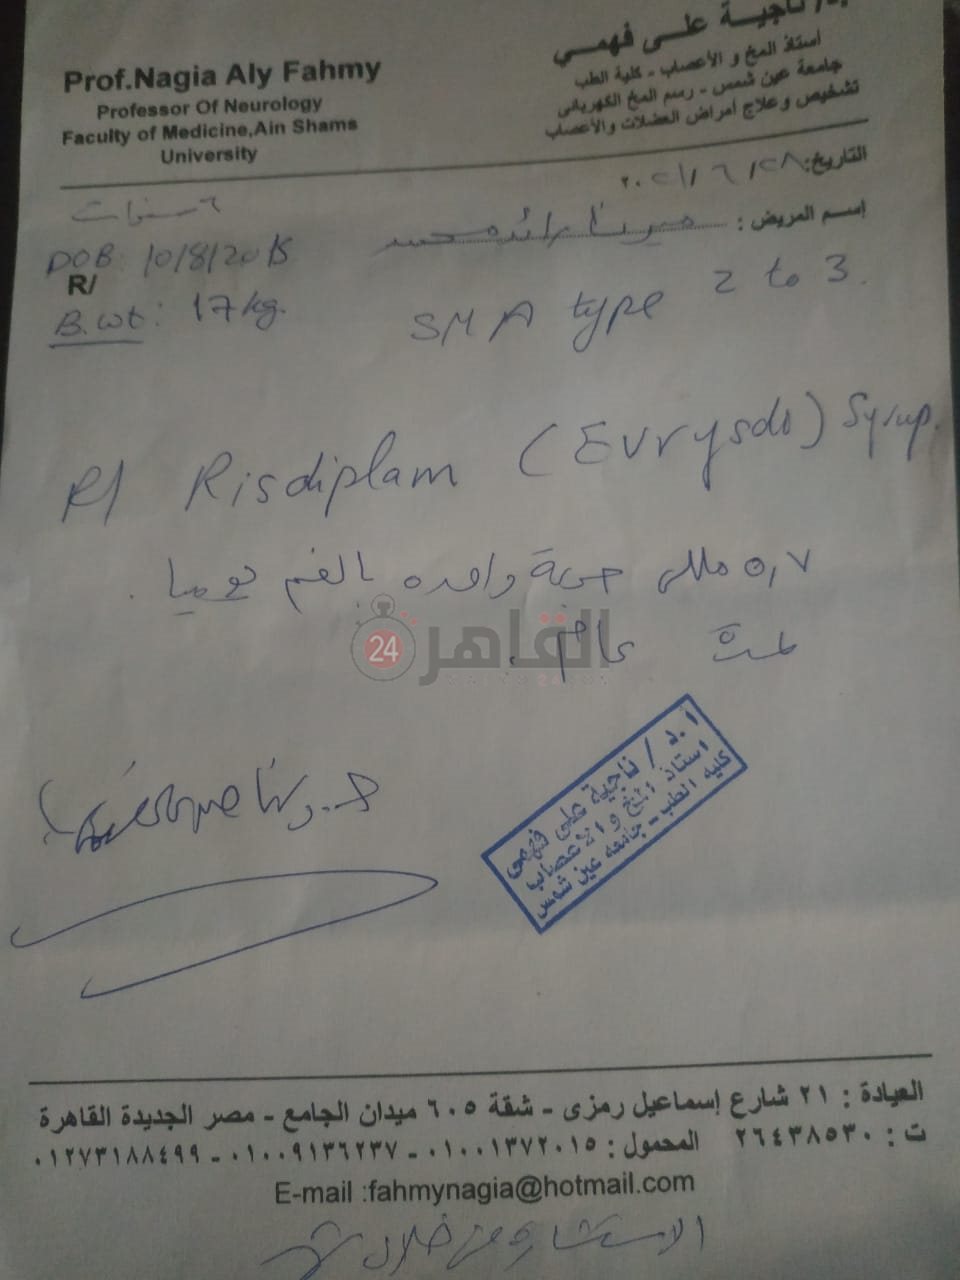 أ.د/ ناجية على فهمي
أستاذ المخ والأعصاب - كلية الطب
جامعة عين شمس - رسم المخ الكهربائى
تشخيص وعلاج أمراض العضلات والأعصاب
Prof.Nagia Aly Fahmy
Professor Of Neurology
Faculty of Medicine,Ain Shams
University
التاريخ: ٢٠٢١/٦/٢٨
إسم المريض : رائد محمد
٦ سنوات
DOB: 10/8/2015
R/
B.wt: 17kg.
SMA type 2 to 3.
R/ Risdiplam (Evrysdi) Syrup.
٠,٧ مللى جرعة واحده بالفم يوميا .
لمدة عام .
القاهرة 24
CAIRO 24.COM
أ.د / ناجية على فهمى
استاذ المخ والأعصاب
كلية الطب - جامعة عين شمس
العيادة : ٢١ شارع إسماعيل رمزى - شقة ٦٠٥ ميدان الجامع - مصر الجديدة القاهرة
ت : ٢٦٤٣٨٥٣٠ المحمول : ٠١٠٠١٣٧٢٠١٥ - ٠١٠٠٩١٣٦٢٣٧ - ٠١٢٧٣١٨٨٤٩٩
E-mail :fahmynagia@hotmail.com
الاستشارة من خلال